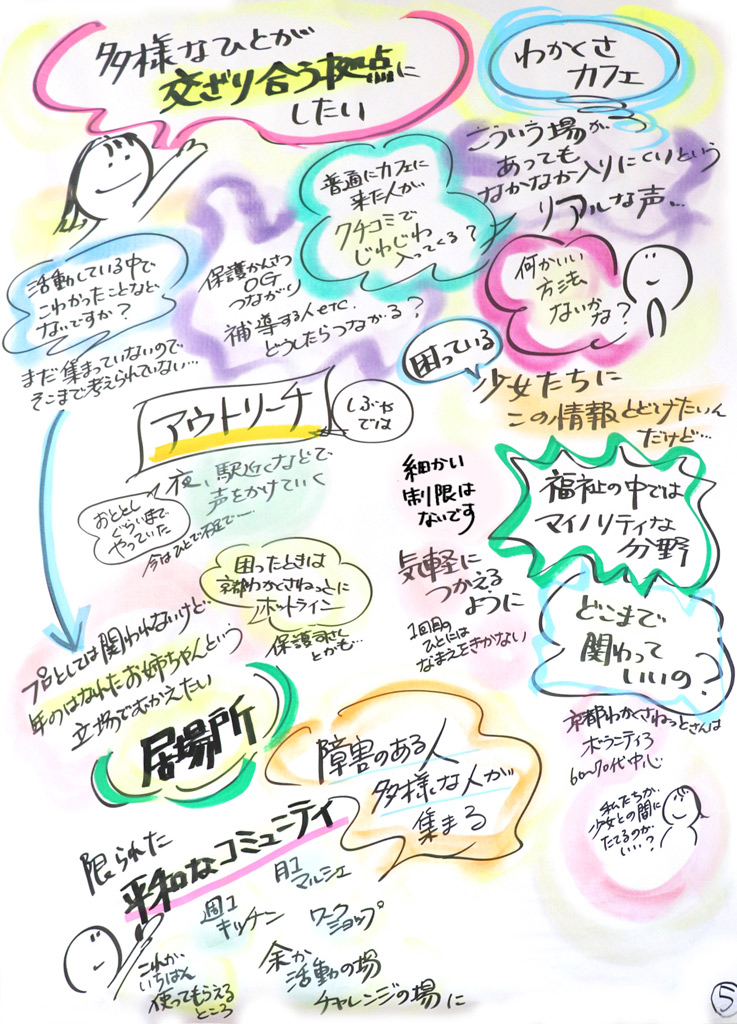 多様なひとが
交ざり合う拠点に
したい
わかくさ
カフェ
こういう場が
あっても
なかなか入りにくいという
リアルな声…
普通にカフェに
来た人が
クチコミで
じわじわ
入ってくる?
活動している中で
こわかったことなど
ないですか?
まだ集まっていないので
そこまで考えられていない…
保護かんさつ
OG
つながり
補導する人etc.
どうしたらつながる?
何かいい
方法
ないか
な?
困っている
少女たちに
この情報とどけたいん
だけど…
アウトリーチ
しぶや
では
夜、駅近くなどで
声をかけていく
おととし
ぐらいまで
やっていた
今はひとで不足で……
細かい
制限は
ないです
気軽に
つかえる
ように
1回目の
ひとには
なまえをきかない
福祉の中では
マイノリティな
分野
どこまで
関わって
いいの?
京都わかくさねっとさんは
ボランティア
60〜70代中心
私たちが
少女との間に
たてるのが
いい…?
困ったときは
京都わかくさねっとに
ホットライン
保護司さん
とかも…
プロとしては関われないけど…
年のはなれたお姉ちゃんという
立場でむかえたい
居場所
障害のある人
多様な人が
集まる
限られた
平和なコミュニティ
月1
マルシェ
週1
キッチン
ワーク
ショップ
これが
いちばん
使ってもらえる
ところ
余か
活動の場
チャレンジの場に
5